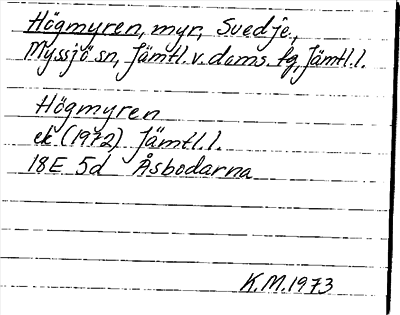 Högmyren, myr, Svedje,
Myssjö sn, Jämtl. v. doms. tg, Jämtl. l.
Högmyren
ek (1972) Jämtl. l.
18E 5d Åsbodarna
K.M. 1973